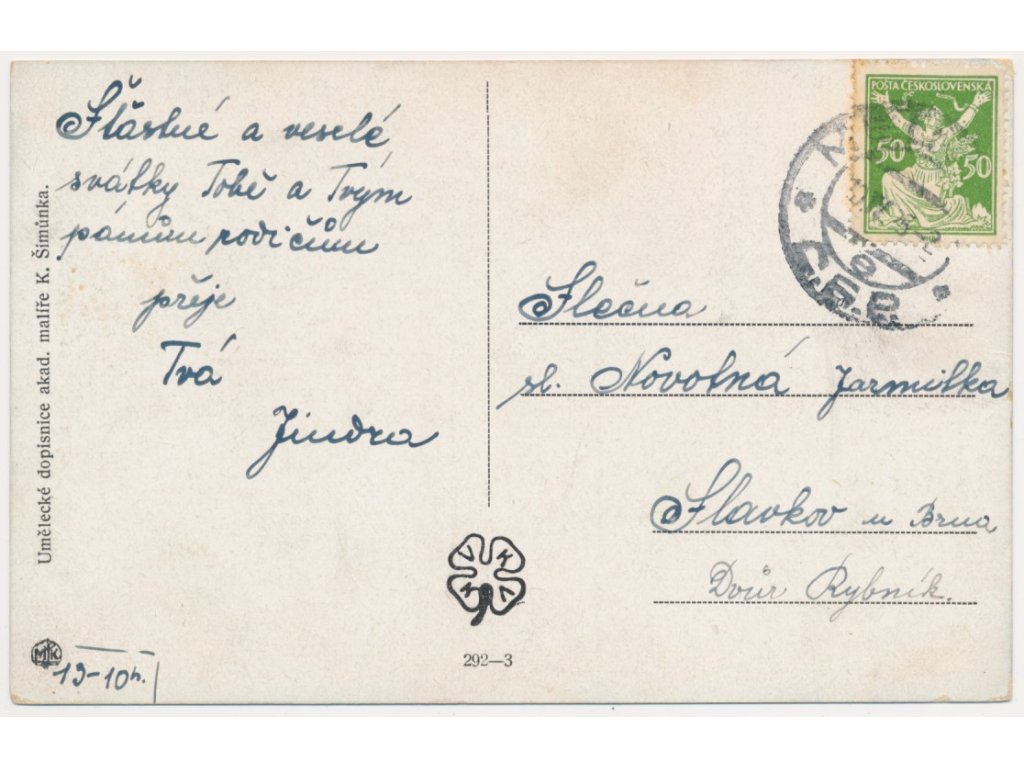 Šťastné a veselé
svátky Tobě a Tvým
pánům rodičům
přeje
Tvá
Jindra
Umělecké dopisnice akad. malíře K. Šimůnka.
POŠTA ČESKOSLOVENSKÁ
50 50
Slečna
sl. Novotná Jarmilka
Slavkov u Brna
Dvůr Rybník.
V K K V
292—3
MK
19-10h.